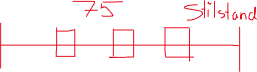 75 Stilstand